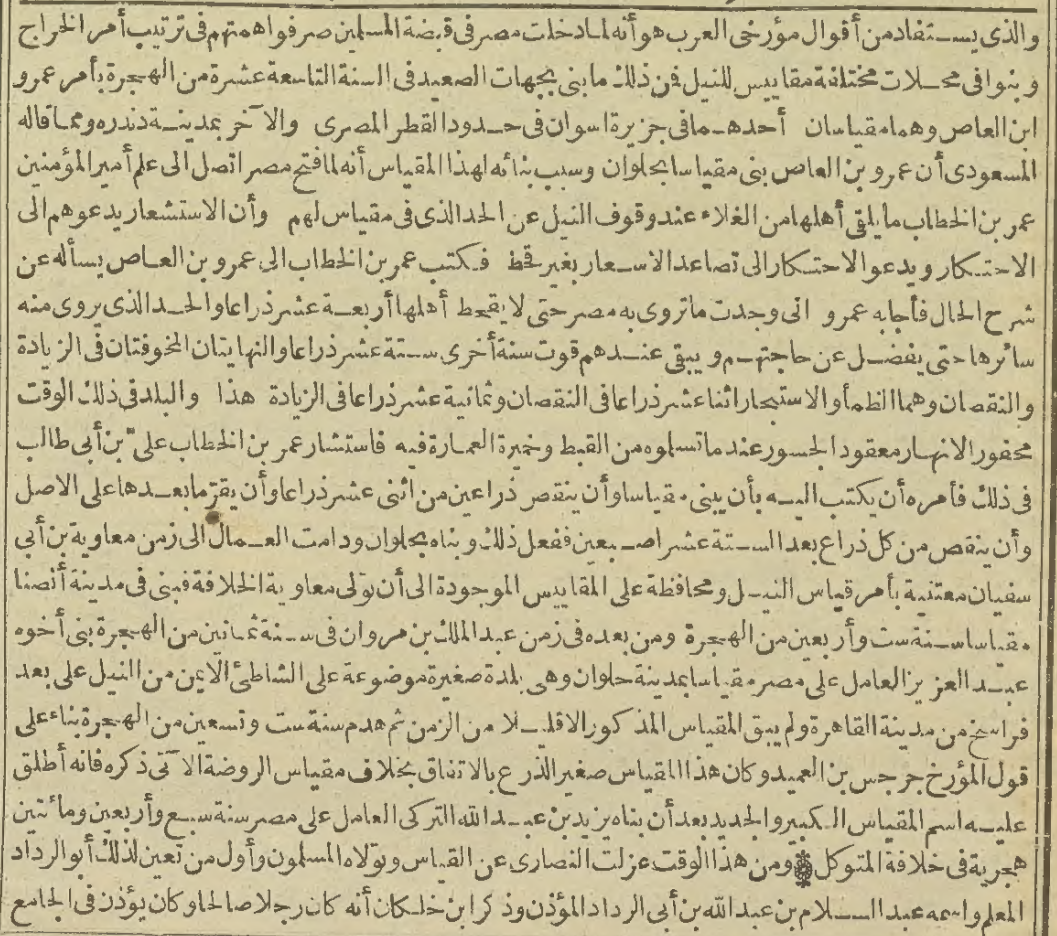 والذى يستفاد من أقوال مؤرخى العرب هو أنه لما دخلت مصر فى قبضة المسلمين صرفوا همتهم فى ترتيب أمر الخراج
وبنوا فى محلات مختلفة مقاييس للنيل فمن ذلك ما بنى بجهات الصعيد فى السنة التاسعة عشرة من الهجرة بأمر عمرو
ابن العاص وهما مقياسان أحدهما فى جزيرة اسوان فى حدود القطر المصرى والآخر بمدينة دندره ومما قاله
المسعودى أن عمرو بن العاص بنى مقياسا بحلوان وسبب بنائه لهذا المقياس أنه لما فتح مصر اتصل الى علم أمير المؤمنين
عمر بن الخطاب ما يلقى أهلها من الغلاء عند وقوف النيل عن الحد الذى فى مقياس لهم وأن الاستشعار يدعوهم الى
الاحتكار ويدعو الاحتكار الى تصاعد الاسعار بغير قحط فكتب عمر بن الخطاب الى عمرو بن العاص يسأله عن
شرح الحال فأجابه عمرو انى وجدت ما تروى به مصر حتى لا يقحط أهلها أربعة عشر ذراعا والحد الذى يروى منه
سائرها حتى يفضل عن حاجتهم ويبقى عندهم قوت سنة أخرى ستة عشر ذراعا والنهايتان المخوفتان فى الزيادة
والنقصان وهما الظمأ والاستبحار اثنا عشر ذراعا فى النقصان وثمانية عشر ذراعا فى الزيادة هذا والبلد فى ذلك الوقت
محفور الانهار معقود الجسور عندما تسلموه من القبط وخميرة العمارة فيه فاستشار عمر بن الخطاب علىّ بن أبى طالب
فى ذلك فأمره أن يكتب اليه بأن يبنى مقياسا وأن ينقص ذراعين من اثنى عشر ذراعا وأن يقرّ ما بعدها على الاصل
وأن ينقص من كل ذراع بعد الستة عشر اصبعين ففعل ذلك وبناه بحلوان ودامت العمال الى زمن معاوية بن أبى
سفيان معتنية بأمر قياس النيل ومحافظة على المقاييس الموجودة الى أن تولى معاوية الخلافة فبنى فى مدينة أنصنا
مقياسا سنة ست وأربعين من الهجرة ومن بعده فى زمن عبد الملك بن مروان فى سنة ثمانين من الهجرة بنى أخوه
عبد العزيز العامل على مصر مقياسا بمدينة حلوان وهى بلدة صغيرة موضوعة على الشاطئ الايمن من النيل على بعد
فراسخ من مدينة القاهرة ولم يبق المقياس المذكور الا قليلا من الزمن ثم هدم سنة ست وتسعين من الهجرة بناء على
قول المؤرخ جرجس بن العميد وكان هذا المقياس صغير الذرع بالاتفاق بخلاف مقياس الروضة الآتى ذكره فانه أطلق
عليه اسم المقياس الكبير والجديد بعد أن بناه يزيد بن عبد الله التركى العامل على مصر سنة سبع وأربعين ومائتين
هجرية فى خلافة المتوكل ومن هذا الوقت عزلت النصارى عن القياس وتولاه المسلمون وأول من تعين لذلك أبو الرداد
المعلم واسمه عبد السلام بن عبد الله بن أبى الرداد المؤذن وذكر ابن خلكان أنه كان رجلا صالحا وكان يؤذن فى الجامع